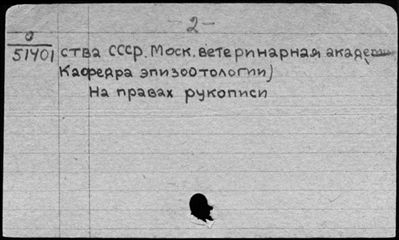 - 2 -
0
51401
ства СССР. Моск. ветеринарная академ
Кафедра эпизоотологии)
На правах рукописи